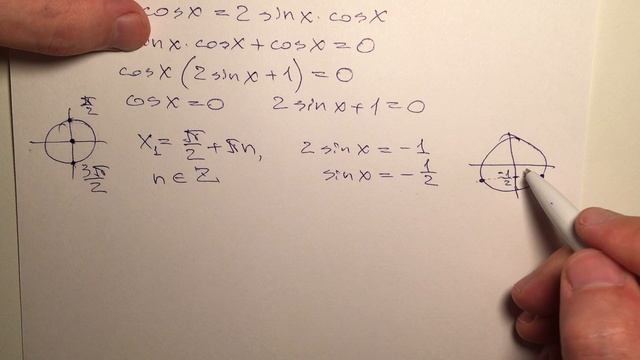 cosx = 2 sinx · cosx
inx · cosx + cosx = 0
cosx (2 sinx + 1) = 0
cosx = 0 2 sinx + 1 = 0
π/2
x₁ = π/2 + πn, 2 sinx = -1
3π/2 n ∈ Z sinx = -1/2 -1/2